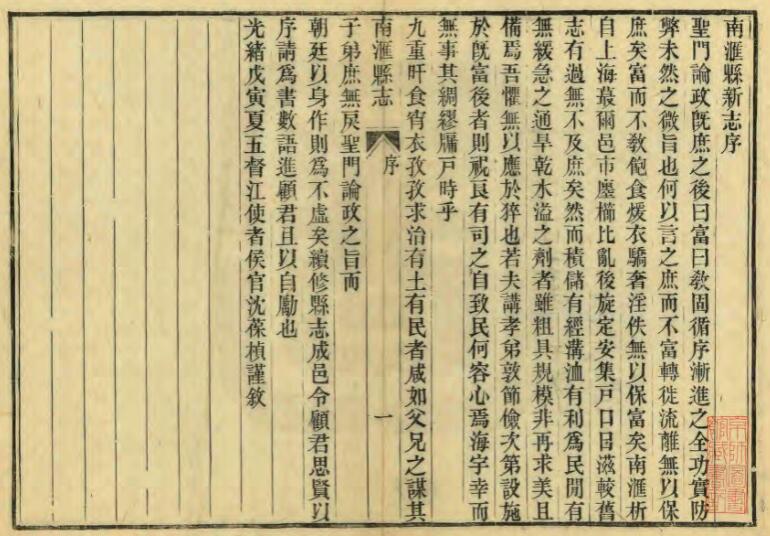 南滙縣新志序
聖門論政旣庶之後曰富曰敎固循序漸進之全功實防
弊未然之微旨也何以言之庶而不富轉徙流離無以保
庶矣富而不敎飽食煖衣驕奢淫佚無以保富矣南滙析
自上海蕞爾邑市廛櫛比亂後旋定安集戸口日滋較舊
志有過無不及庶矣然而積儲有經溝洫有利爲民閒有
無緩急之通旱乾水溢之劑者雖粗具規模非再求美且
備焉吾懼無以應於猝也若夫講孝弟敦節儉次第設施
於旣富後者則視良有司之自致民何容心焉海宇幸而
無事其綢繆牖戸時乎
九重旰食宵衣孜孜求治有土有民者咸如父兄之謀其
南滙縣志
序
一
子弟庶無戾聖門論政之旨而
朝廷以身作則爲不虛矣續修縣志成邑令顧君思賢以
序請爲書數語進顧君且以自勵也
光緒戊寅夏五督江使者侯官沈葆楨謹敘